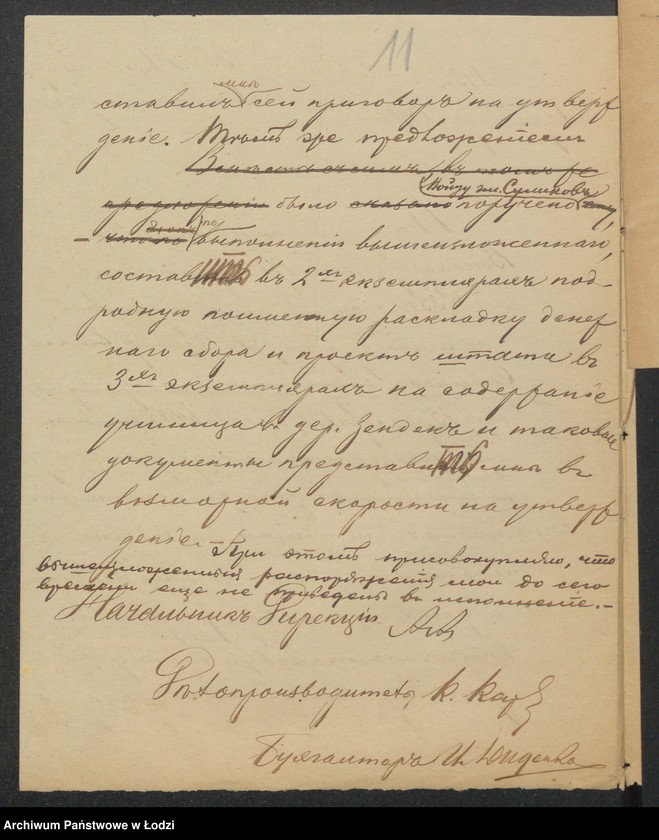 11
мнѣ
ставилъ сей приговоръ на утверж
деніе. Тѣмъ же предложеніемъ
въ томъ же
Войту гм. Сумиковъ
предложеніи было сказано поручено ему,
по
выполненіи вышеизложеннаго,
составить въ 2хъ экземплярахъ под-
робную поименную раскладку денеж
наго сбора и проектъ штата въ
3хъ экземплярахъ на содержаніе
училища въ дер. Зендекъ и таковые
документы представить мнѣ въ
возможной скорости на утверж
деніе. – При этомъ присовокупляю, что
вышеизложенныя распоряженія мои до сего
времени еще не приведены въ исполненіе. –
Начальникъ Дирекціи
Дѣлопроизводитель К.
Бухгалтеръ И.
Archiwum Państwowe w Łodzi